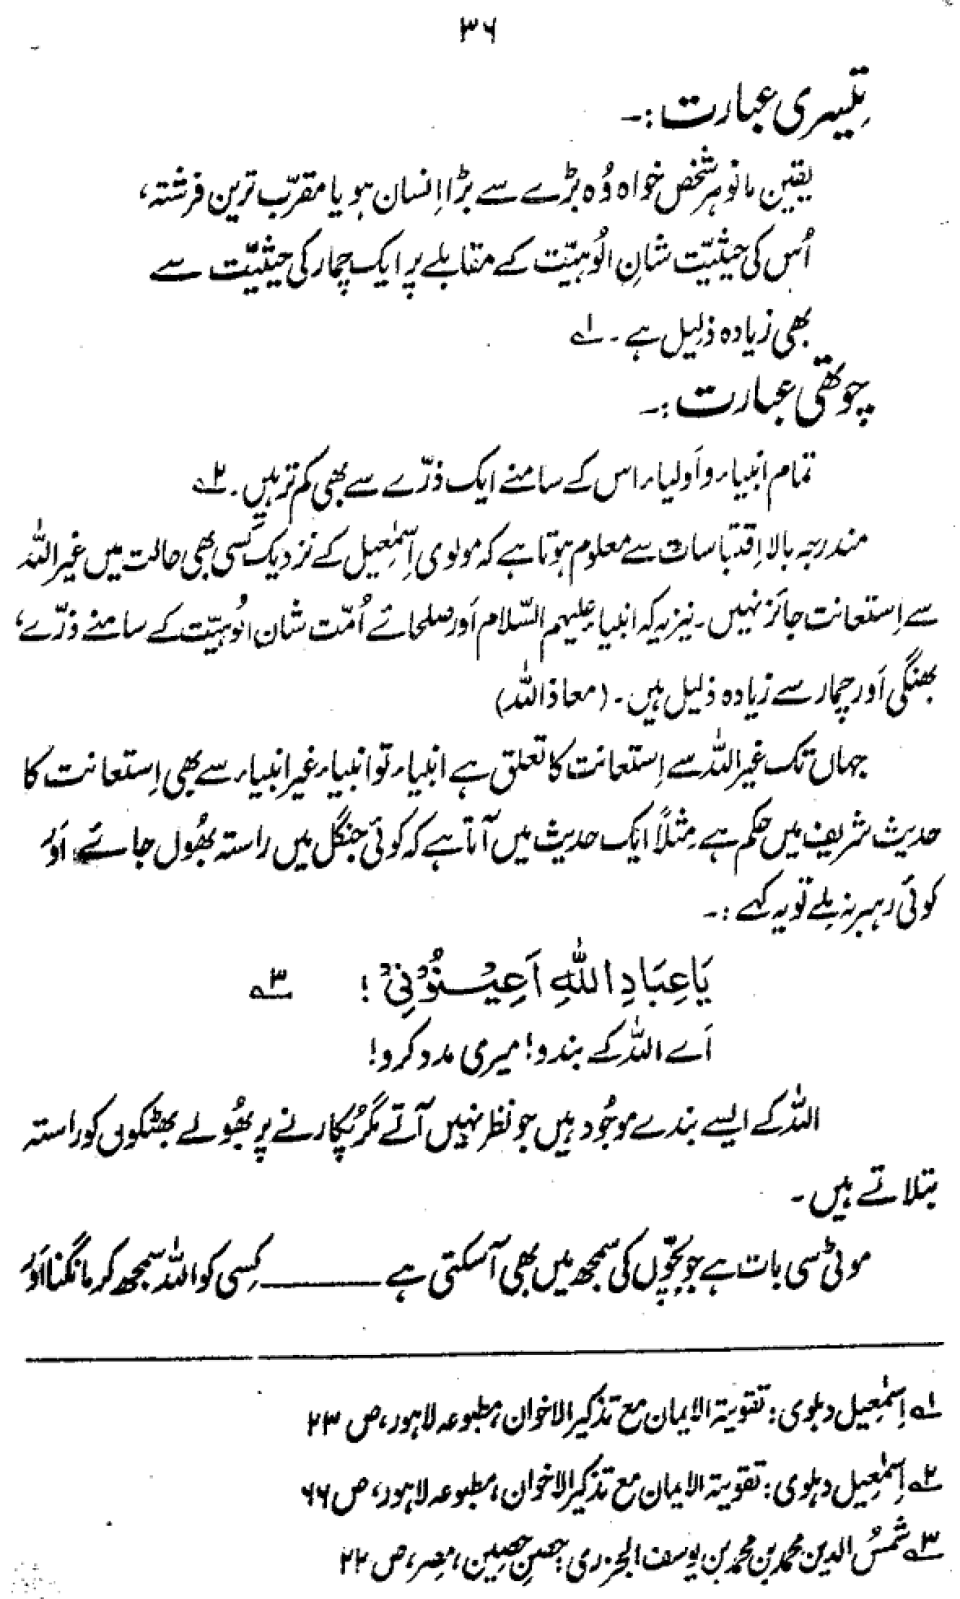 ۳۶
تیسری عبارت :-
یقین مانو ہر شخص خواہ وُہ بڑے سے بڑا اِنسان ہو یا مقرّب ترین فرشتہ،
اُس کی حیثیّت شانِ الُوہیّت کے مقابلے پر ایک چمار کی حیثیّت سے
بھی زیادہ ذلیل ہے۔ ۱؎
چوتھی عبارت :-
تمام انبیاء و اَولیاء اس کے سامنے ایک ذرّے سے بھی کم تر ہیں۔ ۲؎
مندرجہ بالا اِقتباسات سے معلوم ہوتا ہے کہ مولوی اِسمٰعیل کے نزدیک کسی بھی حالت میں غیر اللہ
سے اِستعانت جائز نہیں۔ نیز یہ کہ انبیاء علیہم السّلام اَور صلحائے اُمّت شان الُوہیّت کے سامنے ذرّے،
بھنگی اَور چمار سے زیادہ ذلیل ہیں۔ (معاذ اللہ)
جہاں تک غیر اللہ سے اِستعانت کا تعلق ہے انبیاء تو انبیاء غیر انبیاء سے بھی اِستعانت کا
حدیث شریف میں حکم ہے مثلاً ایک حدیث میں آتا ہے کہ کوئی جنگل میں راستہ بھُول جائے اَور
کوئی رہبر نہ ملے تو یہ کہے :-
یَا عِبَادِ اللّٰہِ اَعِیْنُوْنِیْ ! ۳؎
اَے اللہ کے بندو! میری مدد کرو!
اللہ کے ایسے بندے موجُود ہیں جو نظر نہیں آتے مگر پُکارنے پر بھُولے بھٹکوں کو راستہ
بتلاتے ہیں۔
موٹی سی بات ہے جو بچّوں کی سمجھ میں بھی آ سکتی ہے ـــــــ کِسی کو اللہ سمجھ کر مانگنا اَور
۱؎ اِسمٰعیل دہلوی: تقویۃ الایمان مع تذکیر الاخوان، مطبوعہ لاہور، ص ۲۳
۲؎ اِسمٰعیل دہلوی: تقویۃ الایمان مع تذکیر الاخوان، مطبوعہ لاہور، ص ۶۶
۳؎ شمسُ الدین محمد بن محمد بن یوسف الجزری: حصنِ حصین، مصر، ص ۲۲